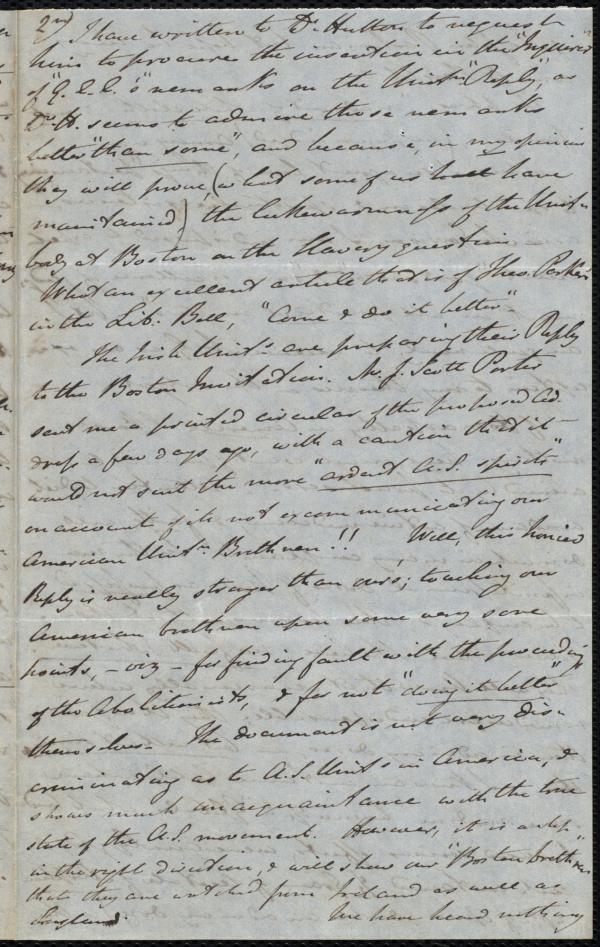 2nd) I have written to Dr. Hutton to request
him to procure the insertion in the "Inquirer"
of "E. L. C.'s" remarks on the Unitn. "Reply", as
Dr. H. seems to admire those remarks
better "than some", and because, in my opinion
they will prove, (what some of us have
maintained) the lukewarmness of the Unitn.
body at Boston on the Slavery question.
What an excellent article that is of Theo. Parker's
in the Lib. Bell, "Come & do it better".
The Irish Units. are preparing their Reply
to the Boston Invitation. Mr. J. Scott Porter
sent me a printed circular of the proposed Ad
dress a few days ago, with a caution that it
would not suit the more "ardent A.S. spirits"
on account of its not excommunicating our
American Unitn. Brethren!! Well, this
Reply is really stronger than ours; touching our
American brethren upon some very sore
points, - viz - for finding fault with the proceedings
of the Abolitionists, & for not "doing it better"
themselves. The document is not very dis-
criminating as to A.S. Units in America, &
shows much unacquaintance with the true
state of the A.S. movement. However, it is a step
in the right direction, & will show our "Boston brethren"
that they are watched from Ireland as well as
England. We have heard nothing